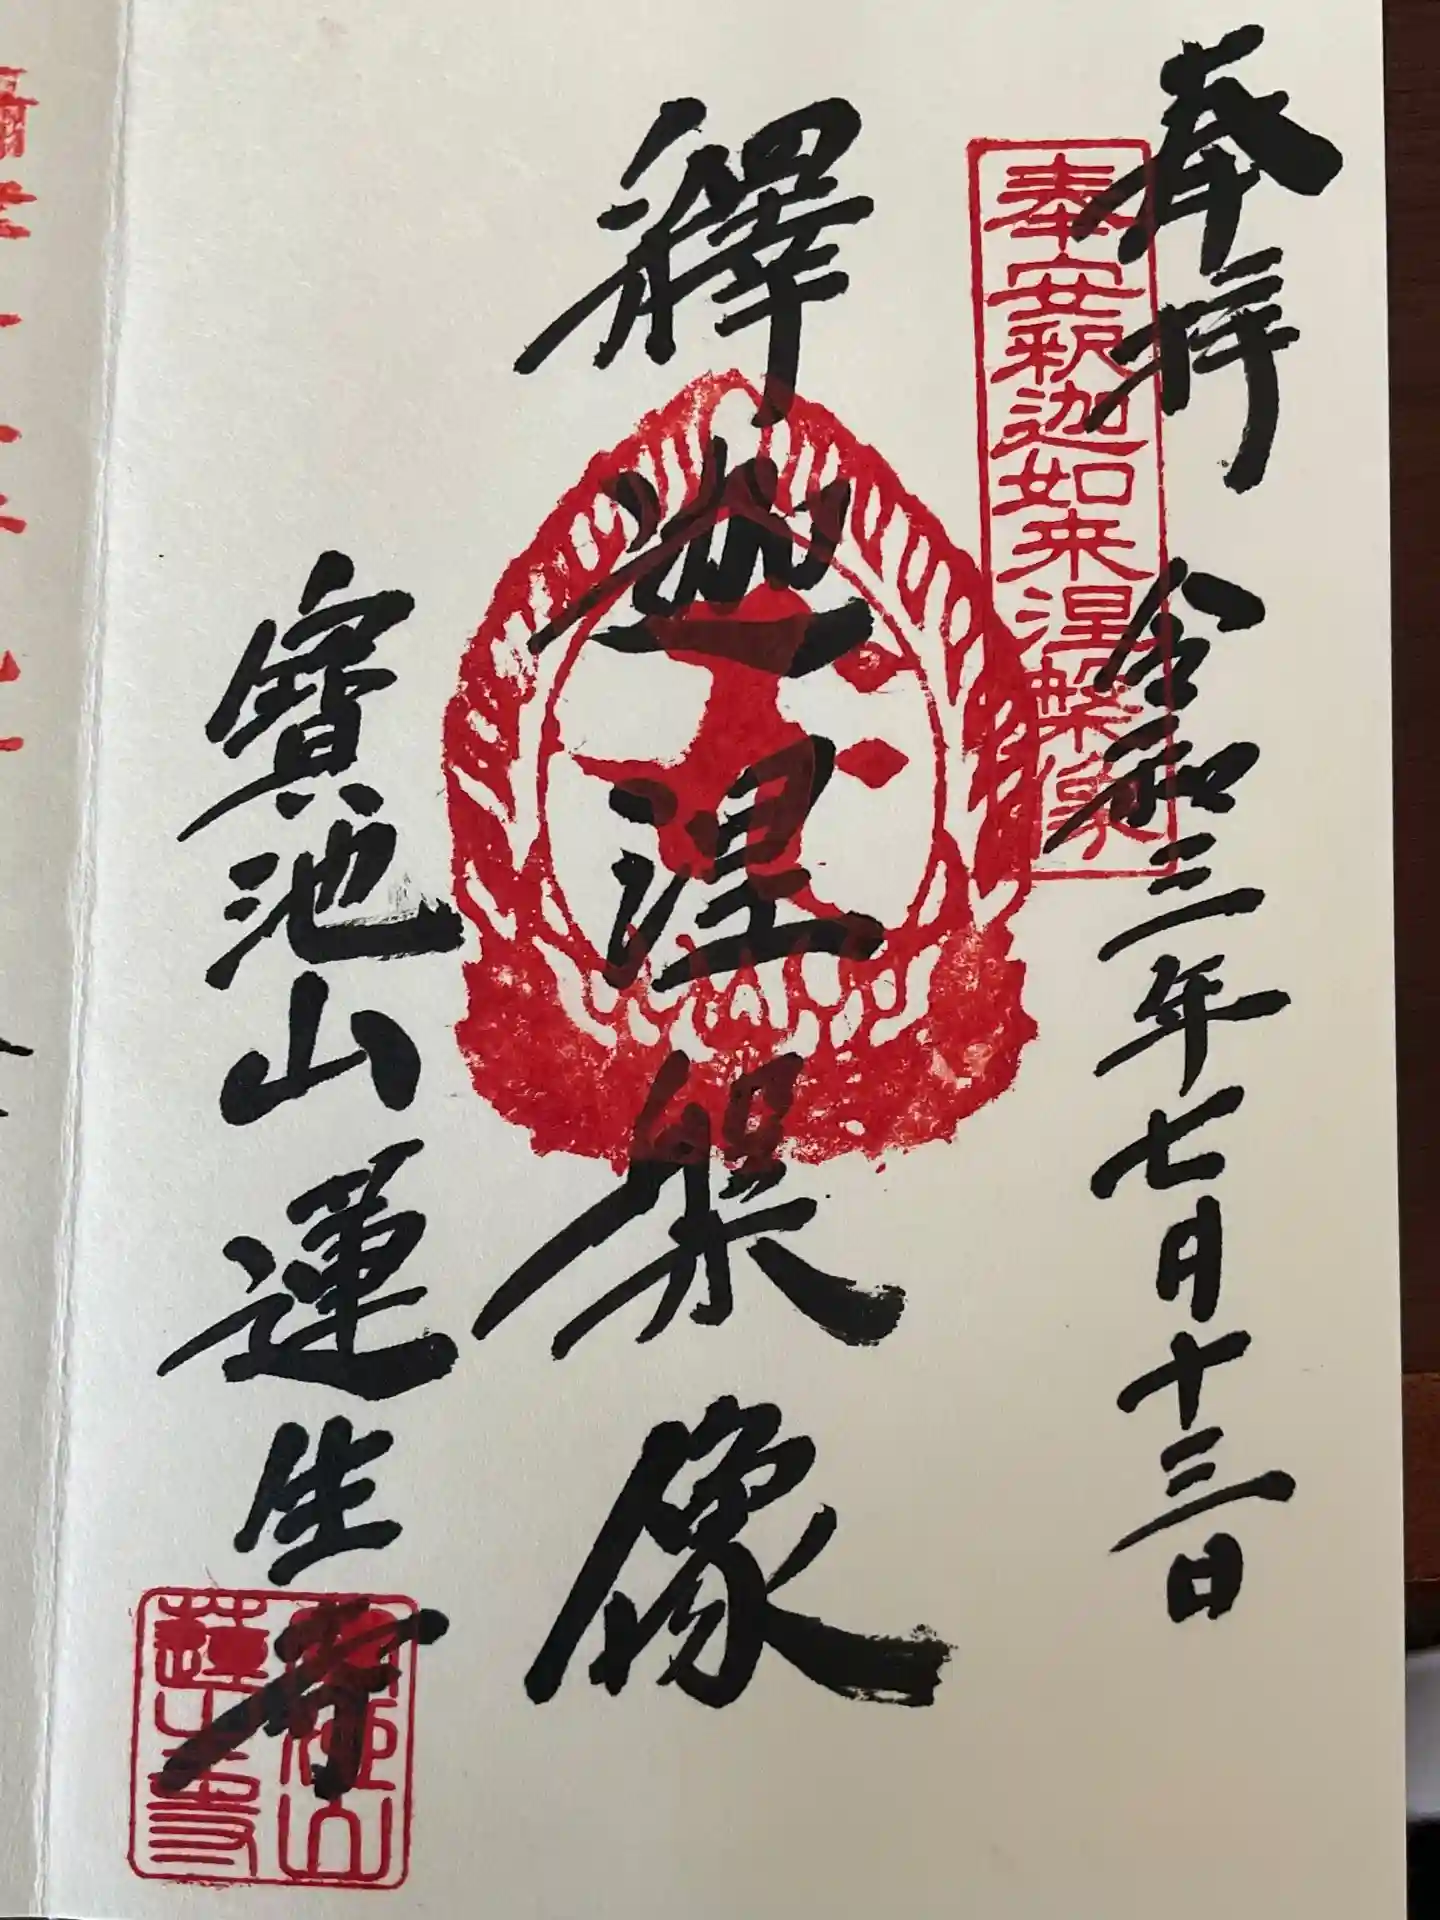 奉拝 令和三年七月十三日
奉安釈迦如来涅槃像
釋迦涅槃像
寶池山蓮生寺
寶池山
蓮生寺